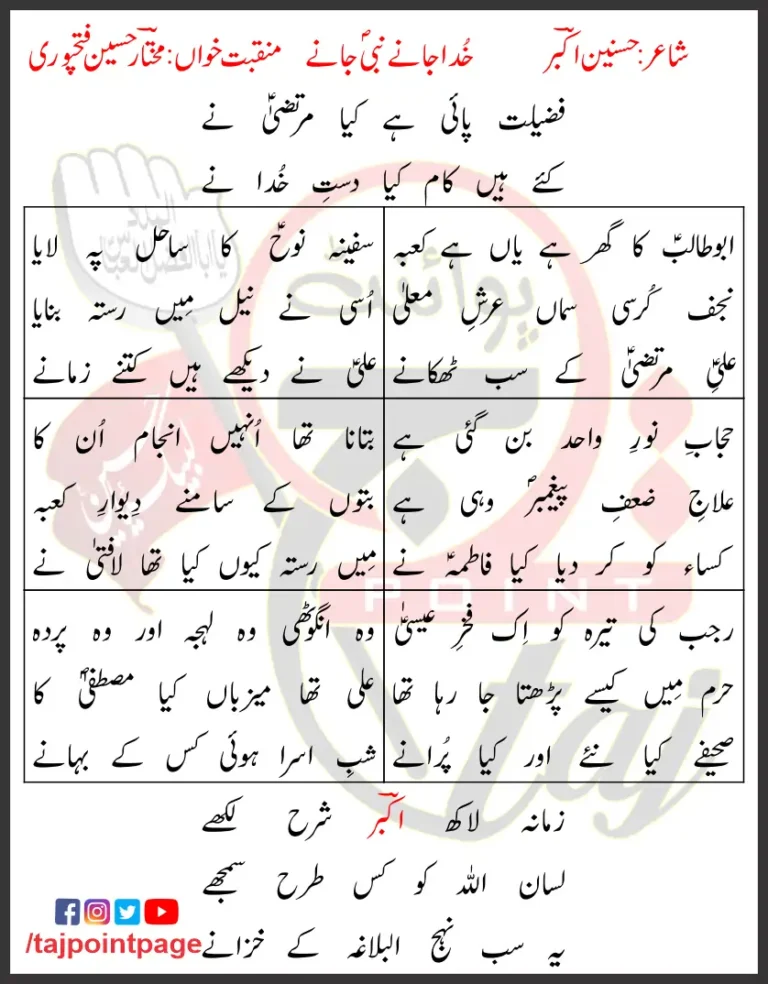 شاعر: حسنین اکبرؔ خُدا جانے نبیؐ جانے منقبت خواں: مختار حسین فتحپوری
فضیلت پائی ہے کیا مرتضیٰؑ نے
کئے ہیں کام کیا دستِ خُدا نے
ابوطالبؑ کا گھر ہے یاں ہے کعبہ
نجف کُرسی سماں عرشِ معلیٰ
علیِؑ مرتضیٰؑ کے سب ٹھکانے
سفینہ نوحؑ کا ساحل پہ لایا
اُسی نے نیل مِیں رستہ بنایا
علیؑ نے دیکھے ہیں کتنے زمانے
حجابِ نورِ واحد بن گئی ہے
علاجِ ضعفِ پیغمبرؐ وہی ہے
کساء کو کر دیا کیا فاطمہؑ نے
بتانا تھا اُنہیں انجام اُن کا
بتوں کے سامنے دِیوارِ کعبہ
مِیں رستہ کیوں کیا تھا لافتیٰ نے
رجب کی تیرہ کو اِک فخرِ عیسیٰؑ
حرم مِیں کیسے پڑھتا جا رہا تھا
صحیفے کیا نئے اور کیا پُرانے
وہ انگوٹھی وہ لہجہ اور وہ پردہ
علی تھا میزباں کیا مصطفیؐ کا
شبِ اسرا ہوئی کس کے بہانے
زمانہ لاکھ اکبرؔ شرح لکھے
لسان اللہ کو کس طرح سمجھے
یہ سب نہج البلاغہ کے خزانے
/tajpointpage
پوائنٹ
POINT
taj